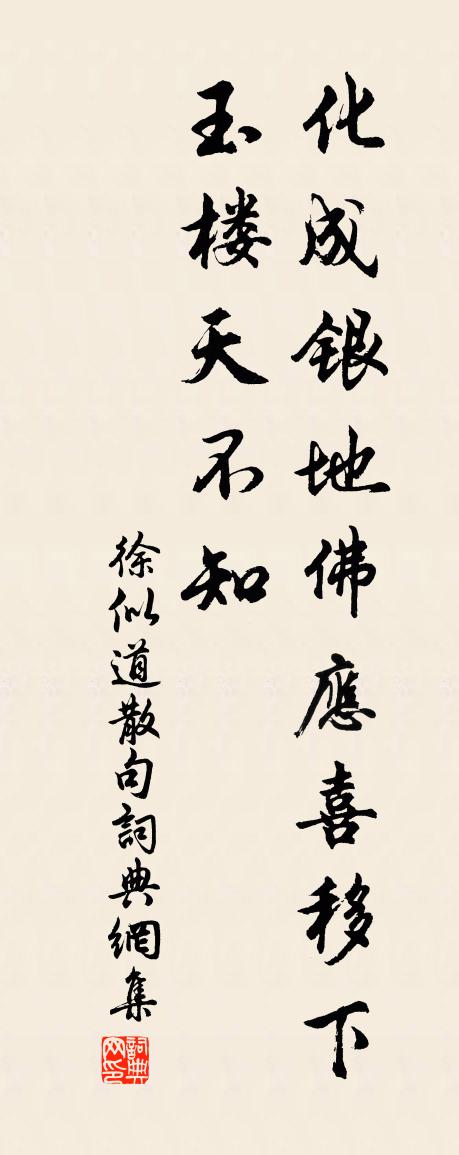 化成銀地佛應喜移下
玉楼天不知
徐似道散句詞典網集
詞典网印